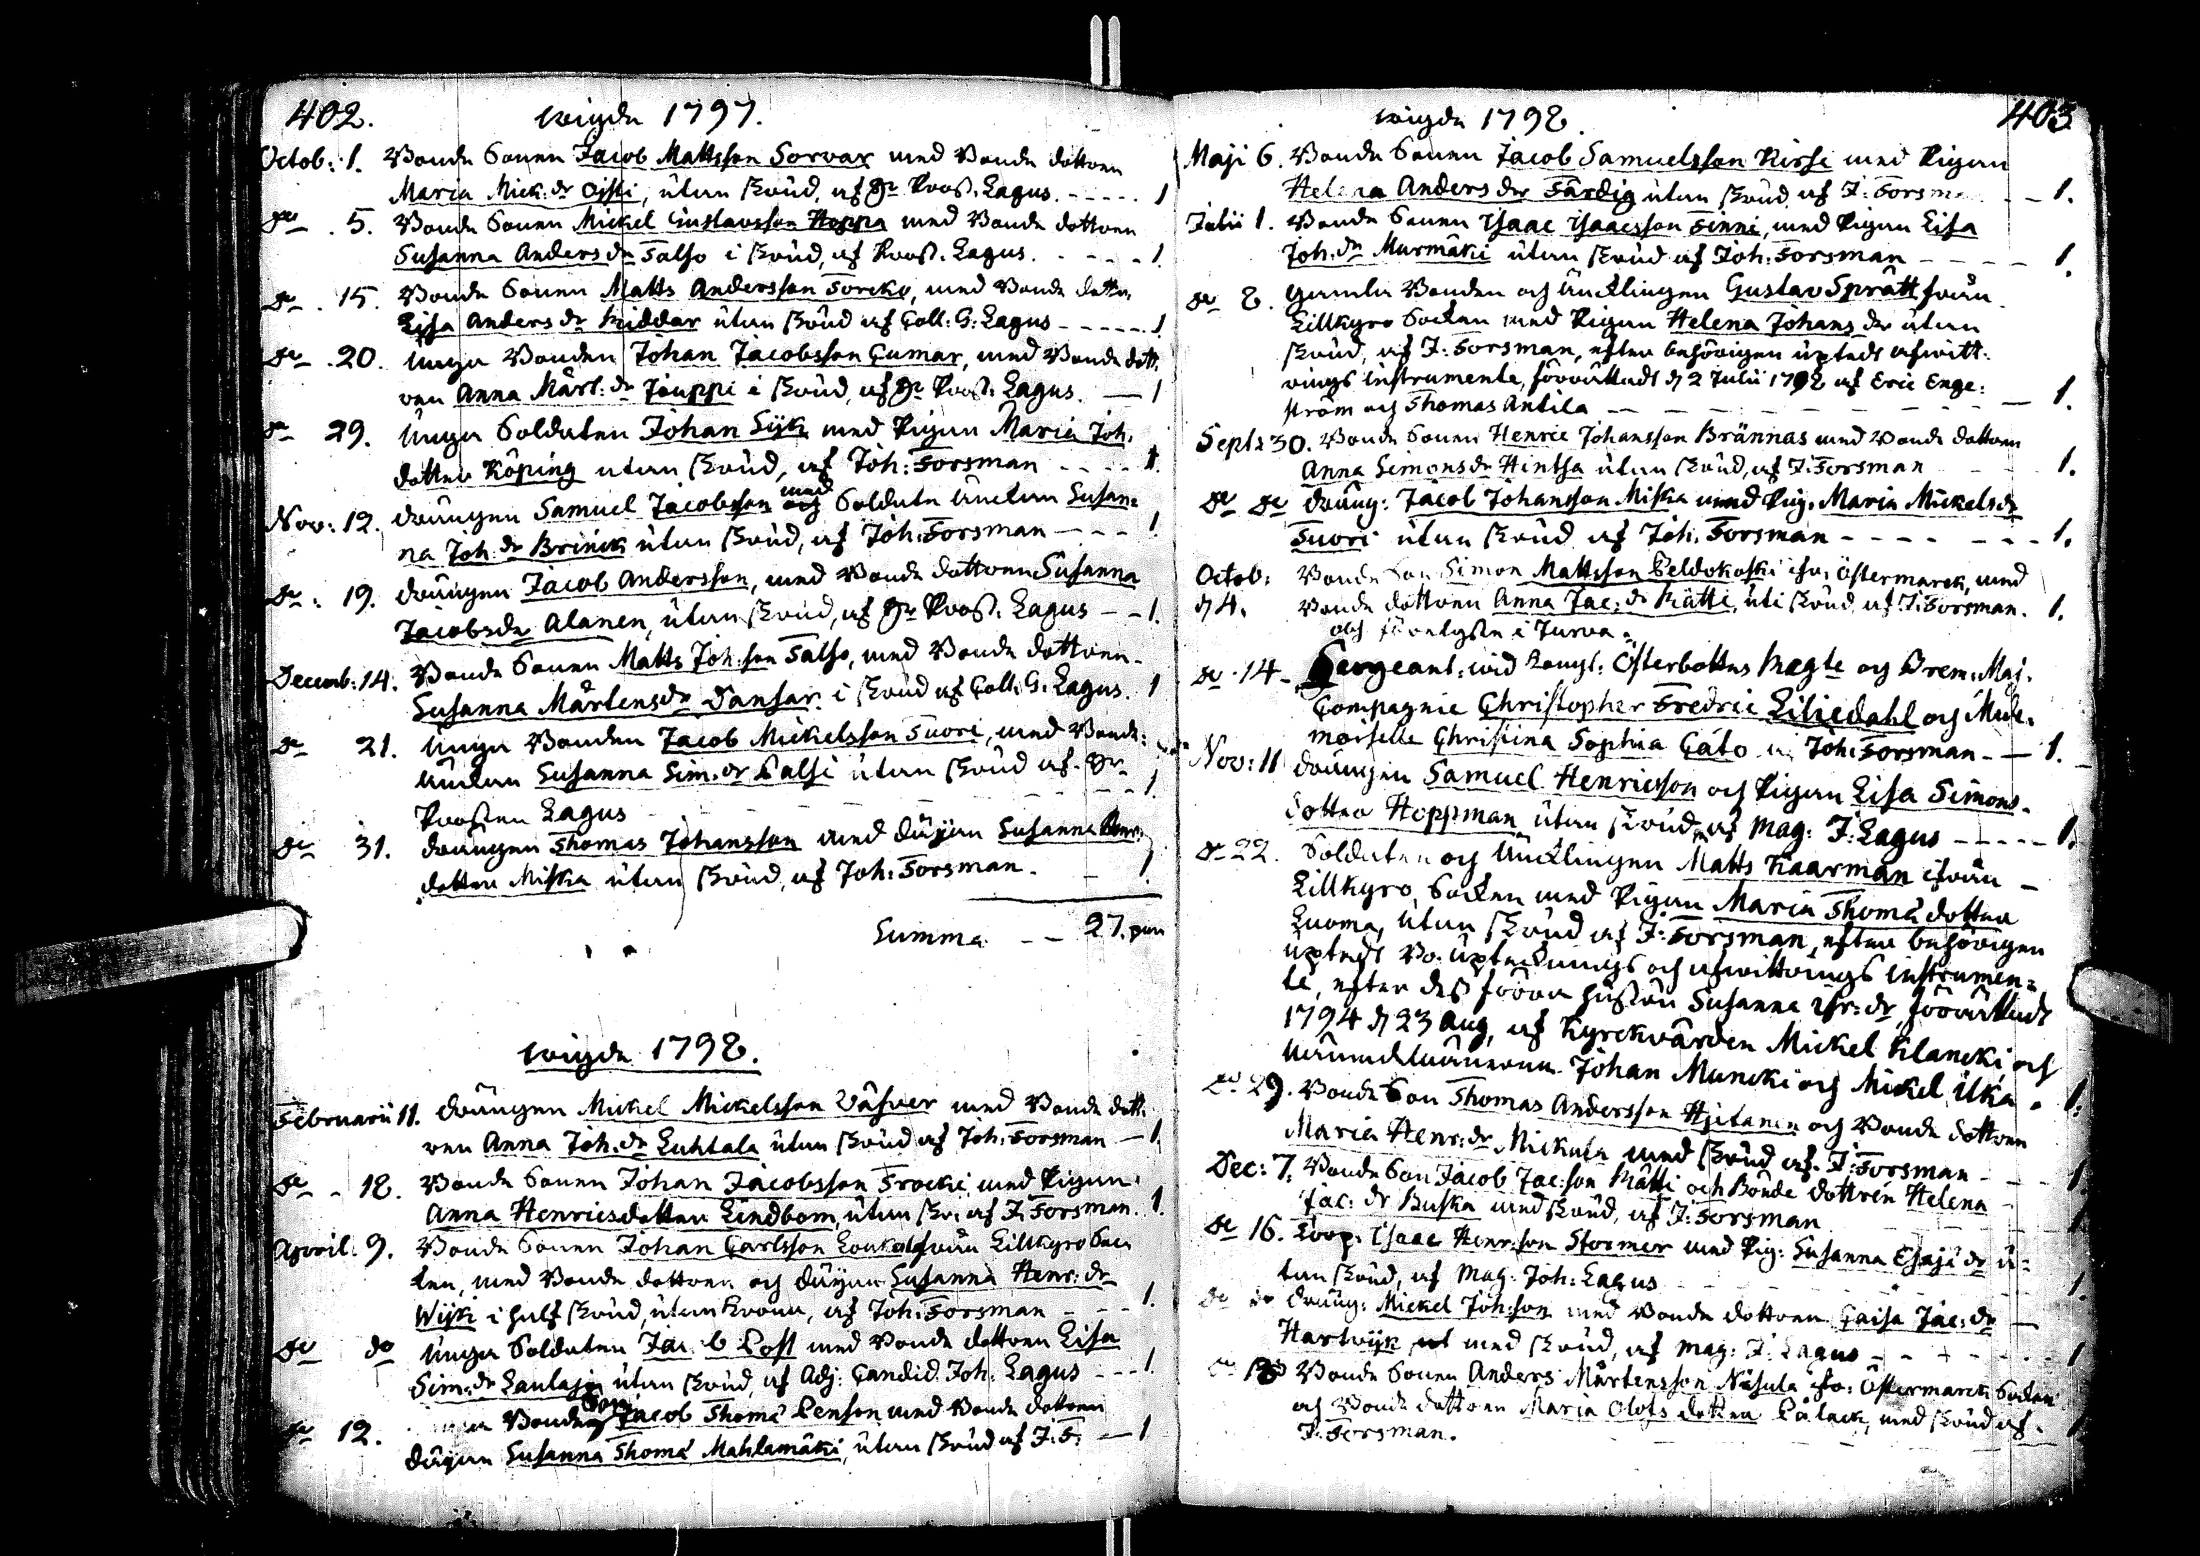 402.
wigde 1797.
Octob: 1. Bonde Sonen Jacob Mattsson Sorvar med Bonde dottren
Maria Mick: dr Ojsti, utan skrud, af Hr Prost. Lagus. - - - - - 1
dr . 5. Bonde Sonen Mickel Gustavsson Hoppa med Bonde dottren
Susanna Anders dr Talso i skrud, af Prost. Lagus. - - - - - 1.
dr . 15. Bonde Sonen Matts Andersson Torcko, med Bonde dottr.
Lisa Anders dr Riddar utan skrud af Coll: G: Lagus - - - - - 1
dr . 20. Unga Bonden Johan Jacobsson Gumar, med Bonde dott.
ren Anna Mårt: dr Jouppi i skrud, af Hr Prost. Lagus. — 1
dr 29. Unga Soldaten Johan Sÿk med Pigan Maria Joh.
dotter Köping utan skrud, af Joh: Forsman - - - - 1.
Nov: 12. Drängen Samuel Jacobsson med Soldate Änckan Susan=
na Joh. dr Brinck utan skrud, af Joh: Forsman - - - 1.
dr : 19. Drängen Jacob Andersson, med Bonde dottren Susanna
Jacobsdr Alanen, utan skrud, af Hr Prost. Lagus - - 1.
Decemb: 14. Bonde Sonen Matts Joh:son Talso, med Bonde dottren
Susanna Mårtensdr Dansar i skrud af Coll. G: Lagus. 1
dr 21. Unga Bonden Jacob Mickelsson Tuori, med Bonde:
Änckan Susanna Sim: dr Palsi utan skrud af. Hr
Prosten Lagus - - - - - 1.
dr 31. Drängen Thomas Johansson med däjan Susanna Henr:
dotter Miska utan skrud, af Joh: Forsman. - 1
Summa - - 27. par
wigde 1798.
Februarii 11. Drängen Mickel Mickelsson Våsver med Bonde dott.
ren Anna Joh. dr Luhtala utan skrud af Joh: Forsman — 1
dr - 18. Bonde Sonen Johan Jacobsson Frocki med Pigan.
Anna Henricsdotter Lindbom, utan skr. af J. Forsman. 1.
April. 9. Bonde Sonen Johan Carlsson från Lillkyro Soc:
ken, med Bonde dottren och däjan Susanna Henr: dr
Wijk i half skrud, utan krona, af Joh: Forsman - - - 1.
dr do Unga Soldaten Jacob Post med Bonde dottren Lisa
Sim: dr utan skrud, af Adj: Candid. Joh. Lagus - - - 1.
dr 12. Bonde Son Jacob Thomæ Penson med Bonde dottren
däjan Susanna Thomæ Mahlamäki, utan skrud af J: F: — 1
403
wigde 1798
Maji 6. Bonde Sonen Jacob Samuelsson Kirsi med Pigan
Helena Anders dr Färdig utan skrud af J: Forsman - - 1.
Julii 1. Bonde Sonen Isaac Isaacsson Finni, med Pigan Lisa
Joh. dr Murmäki utan skrud af Joh: Forsman - - - - 1.
dr 8. Gamla Bonden och Äncklingen Gustav Sprått från
Lillkyro Socken med Pigan Helena Johans dr utan
skrud, af J: Forsman, efter behörigen uptedt afwitt:
rings instrumente, förrättadt d 2 Julii 1798 af Eric Enge:
ström och Thomas Antila — — — — — 1.
Sept: 30. Bonde Sonen Henric Johansson Brännas med Bonde dottren
Anna Simons dr Hintsa utan skrud, af J: Forsman - - - 1.
dr dr Dräng: Jacob Johansson Miska med Pig. Maria Mickelsdr
Tuori utan skrud af Joh. Forsman - - - - - - - 1.
Octob: Bonde Son Simon Mattsson Peldokoski ifr. Östermarck, med
d 4. Bonde dottren Anna Jac: dr Kätti, uti skrud af J: Forsman. 1.
och förelyste i Jurva.
dr 14. Sergeant. wid Kongl: Österbottns Regte och Prem. Maj.
Compagnie Christopher Fredric Liliedahl och Made.
moiselle Christina Sophia Cato af Joh: Forsman - — 1.
Nov: 11 Drängen Samuel Henricsson och Pigan Lisa Simons.
dotter Hoppman utan skrud, af Mag: J. Lagus - - - - - 1.
dr 22. Soldaten och Äncklingen Matts Kaarman ifrån
Lillkyro, Socken med Pigan Maria Thomæ dotter
Luoma, utan skrud af J: Forsman, efter behörigen
uptedt Bo. upteknings och afwittrings instrumen=
te, efter dess förra hustru Susanna Isr: dr, förrättadt
1794 d 23 Aug, af Kyrckvärden Mickel Klancki och
Nämndemännerne Johan Muncki och Mickel Ilka . 1:
dr 29. Bonde Son Thomas Andersson Hjitanen och Bonde dottren
Maria Henr: dr Mickula med skrud af. J: Forsman - - - 1.
Dec: 7. Bonde Son Jacob Jac:son Kätti och Bonde dottren Helena
Jac: dr Buska med skrud, af J: Forsman - - 1
dr 16. Corp. Isaac Henr:son Stormer med Pig: Susanna Esajæ dr u=
tan skrud, af Mag: Joh: Lagus - - - 1.
dr dr Dräng: Mickel Joh:son med Bonde dottren Caisa Jac: dr —
Hartwijk med skrud, af Mag: J: Lagus - - - - - - 1
Bonde Sonen Anders Mårtensson Näsula ifr: Östermarck Socken
och Bonde dottren Maria Olofs dotter Pålack, med skrud af. 1
J: Forsman.